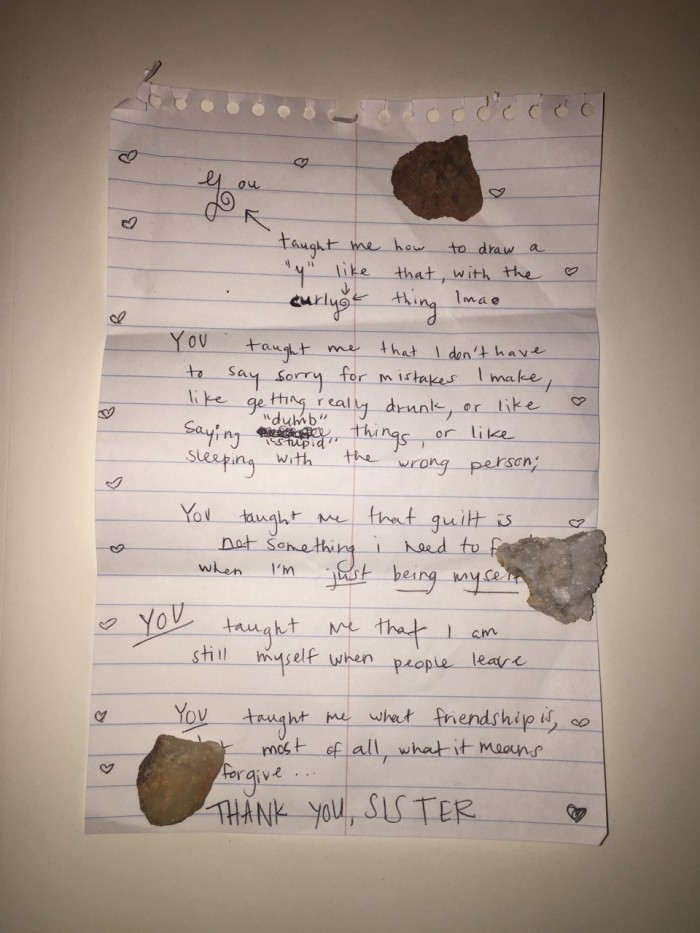 You
taught me how to draw a
"y" like that, with the
curly thing lmao
YOU taught me that I don't have
to say sorry for mistakes I make,
like getting really drunk, or like
"dumb"
saying "stupid" things, or like
sleeping with the wrong person;
YOU taught me that guilt is
not something i need to
when I'm just being myself
YOU taught me that I am
still myself when people leave
YOU taught me what friendship is,
most of all, what it means
forgive ...
THANK YOU, SISTER